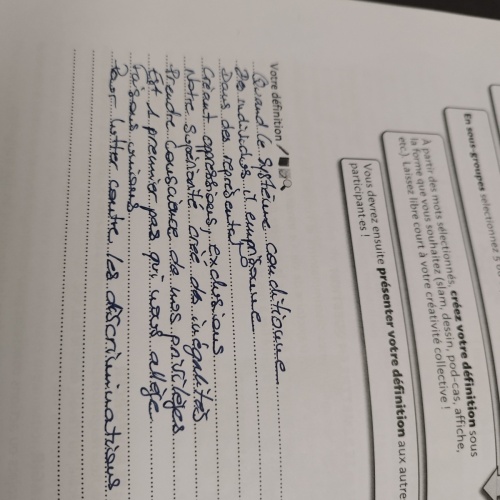 En sous-groupes sélectionnez 5 ou
À partir des mots sélectionnés, créez votre définition sous
la forme que vous souhaitez (slam, dessin, pod-cas, affiche,
etc.) Laissez libre court à votre créativité collective !
Vous devrez ensuite présenter votre définition aux autre
participant·es !
Votre définition /
Quand le système conditionne
De individus, il emprisonne
Dans des représente!
Créant oppressions, exclusions
Notre supériorité crée des inégalités
Prendre conscience de nos privilèges
Est 1 premier pas qui nous allège
Faisons unissons
Pour lutter contre les discriminations